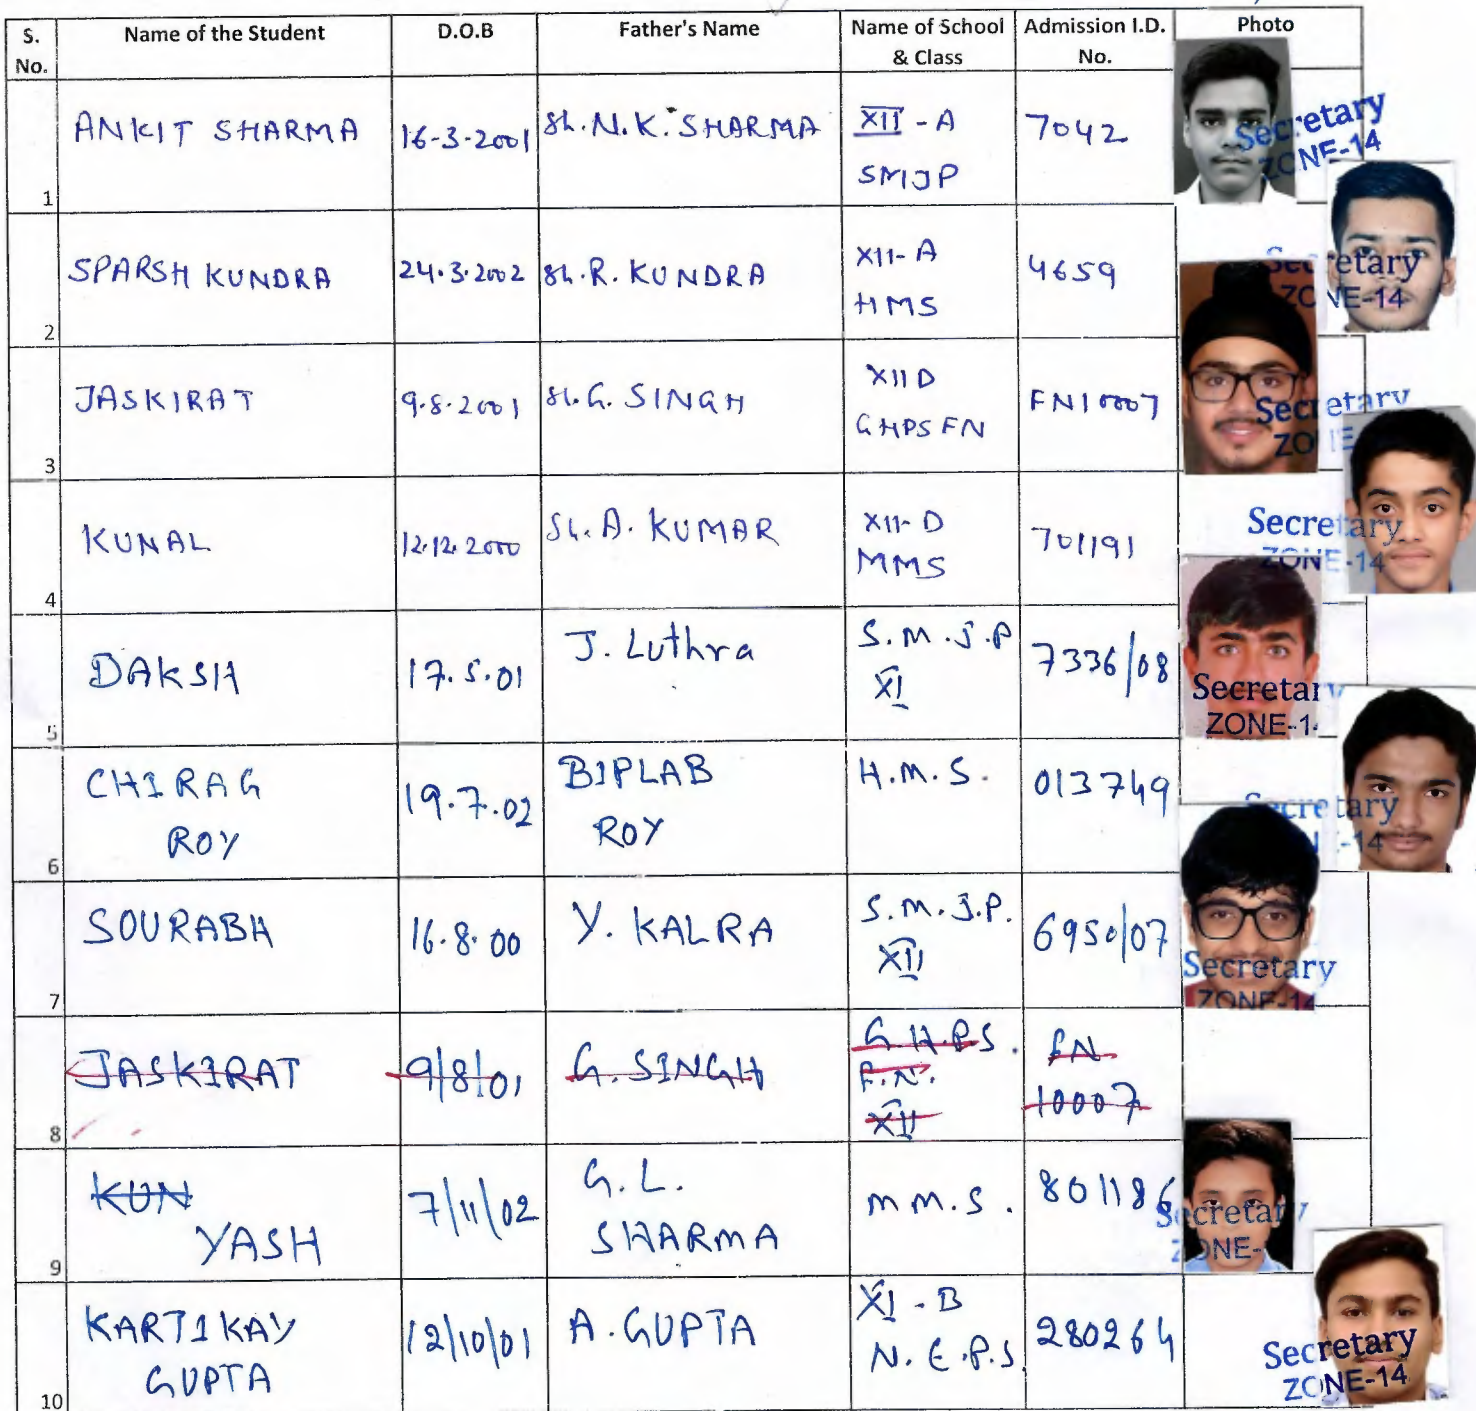 S. No. Name of the Student D.O.B Father's Name Name of School & Class Admission I.D. No. Photo
1 ANKIT SHARMA 16-3-2001 Sh. N.K. SHARMA XII - A SMJP 7042
Secretary
ZONE-14
2 SPARSH KUNDRA 24.3.2002 Sh. R. KUNDRA XII- A HMS 4659
Secretary
ZONE-14
3 JASKIRAT 9.8.2001 Sh. G. SINGH XII D GHPS FN FN10007
Secretary
4 KUNAL 12.12.2000 Sh. A. KUMAR XII- D MMS 701191
Secretary
ZONE-14
5 DAKSH 17.5.01 J. Luthra S.M.J.P XI 7336/08
Secretary
ZONE-14
6 CHIRAG ROY 19.7.02 BIPLAB ROY H.M.S. 013749
Secretary
7 SOURABH 16.8.00 Y. KALRA S.M.J.P. XII 6950/07
Secretary
ZONE-14
8 JASKIRAT 9/8/01 G. SINGH G.H.P.S. F.N. XII FN 10007
9 KUN YASH 7/11/02 G.L. SHARMA M M.S. 801186
Secretary
ZONE-
10 KARTIKAY GUPTA 12/10/01 A. GUPTA XI - B N.E.P.S. 280264
Secretary
ZONE-14